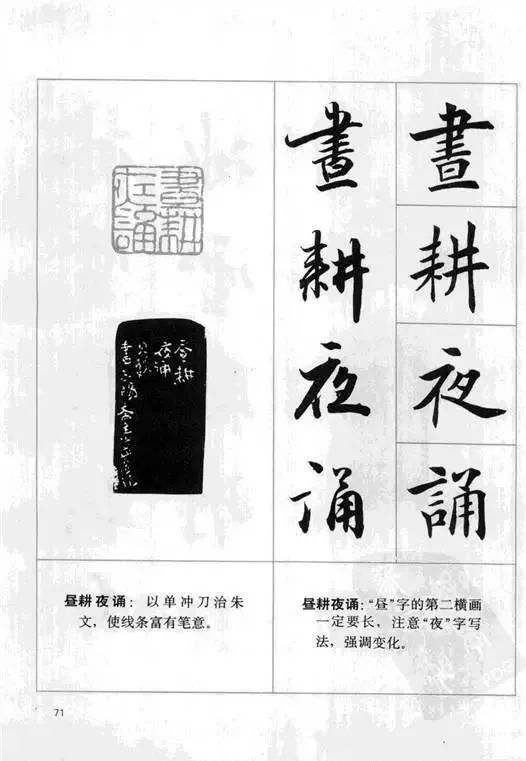 晝耕夜誦
晝耕夜诵
晝耕
夜誦
昼耕
夜诵
昼耕夜诵：以单冲刀治朱
文，使线条富有笔意。
昼耕夜诵：“昼”字的第二横画
一定要长，注意“夜”字写
法，强调变化。
71